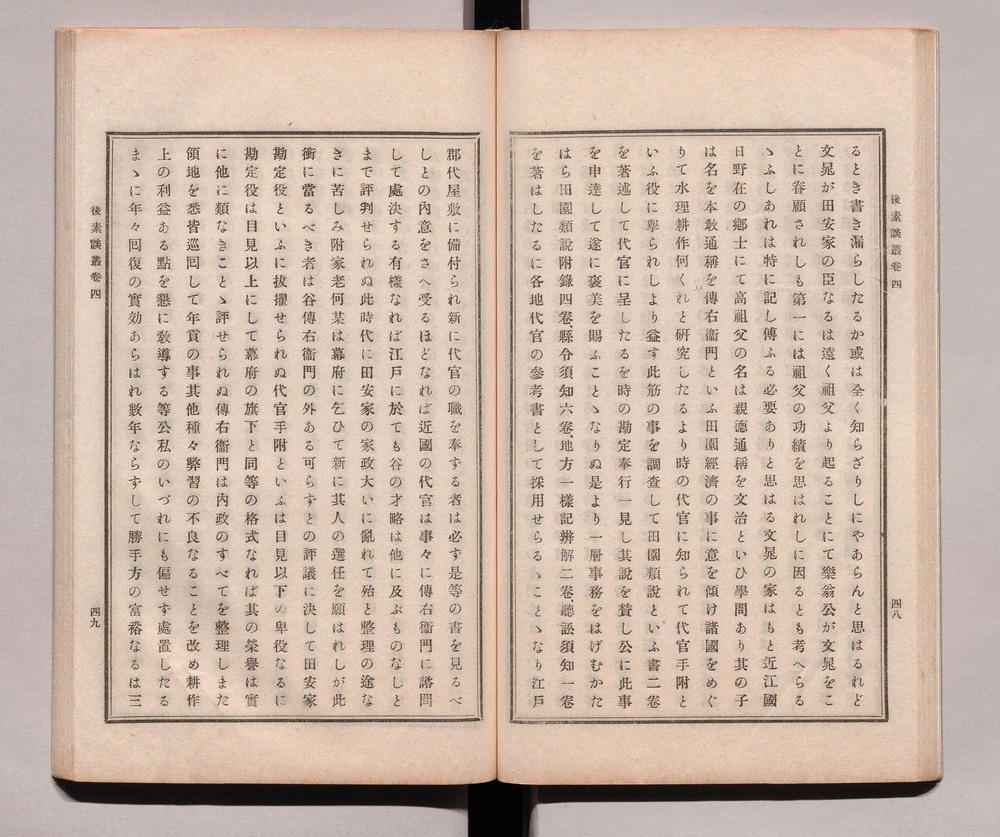 後素談叢卷四
四八
るとき書き漏らしたるか或は全く知らざりしにやあらんと思はるれど
文晁が田安家の臣なるは遠く祖父より起ることにて樂翁公が文晁をこ
とに眷顧されしも第一には祖父の功績を思はれしに因るとも考へらる
ゝふしあれは特に記し傳ふる必要ありと思はる文晁の家はもと近江國
日野在の鄕士にて高祖父の名は親德通稱を文治といひ學問あり其の子
は名を本敎通稱を傳右衞門といふ田園經濟の事に意を傾け諸國をめぐ
りて水理耕作何くれと硏究したるより時の代官に知られて代官手附と
いふ役に擧られしより益す此筋の事を調査して田園類說といふ書二卷
を著述して代官に呈したるを時の勘定奉行一見し其說を賛し公に此事
を申達して遂に褒美を賜ふことゝなりぬ是より一層事務をはげむかた
はら田園類說附錄四卷、縣令須知六卷地方一樣記辨解二卷、聽訟須知一卷
を著はしたるに各地代官の參考書として採用せらるゝことゝなり江戶
郡代屋敷に備付られ新に代官の職を奉する者は必す是等の書を見るべ
しとの內意をさへ受るほどなれば近國の代官は事々に傳右衞門に諮問
して處決する有樣なれば江戶に於ても谷の才略は他に及ぶものなしと
まで評判せられぬ此時代に田安家の家政大いに亂れて殆と整理の途な
きに苦しみ附家老何某は幕府に乞ひて新に其人の選任を願はれしが此
衝に當るべき者は谷傳右衞門の外ある可らすとの評議に決して田安家
勘定役といふに拔擢せられぬ代官手附といふは目見以下の卑役なるに
勘定役は目見以上にして幕府の旗下と同等の格式なれば其の榮譽は實
に他に類なきことゝ評せられぬ傳右衞門は內政のすべてを整理しまた
領地を悉皆巡回して年貢の事其他種々弊習の不良なることを改め耕作
上の利益ある點を懇に敎導する等公私のいづれにも偏せす處置したる
まゝに年々回復の實効あらはれ數年ならすして勝手方の富裕なるは三
後素談叢卷四
四九